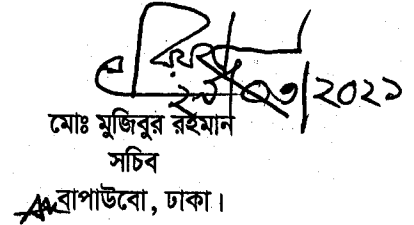 ২৯/০৩/২০২১
মোঃ মুজিবুর রহমান
সচিব
বাপাউবো, ঢাকা।